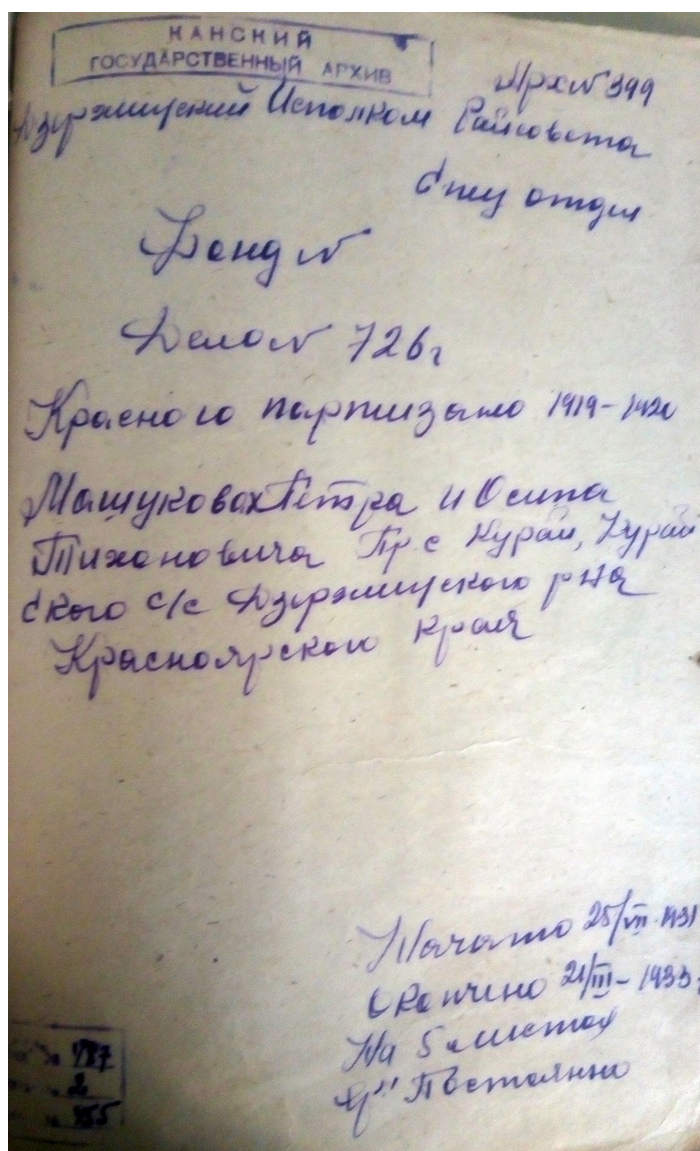 КАНСКИЙ
ГОСУДАРСТВЕННЫЙ АРХИВ
Арх № 399
Дзержинский Исполком Райсовета
Общ отдел
Фонд №
Дело № 726г
Красного партизано 1919-1920
Машуковах Петра и Осипа
Тихановича Пр с Курай, Курай
ского с/с Дзержинского р-на
Красноярского края
Начато 25/VII-1931
Окончено 21/III-1933г
На 5 листах
Хр" Постоянно
487
2
455